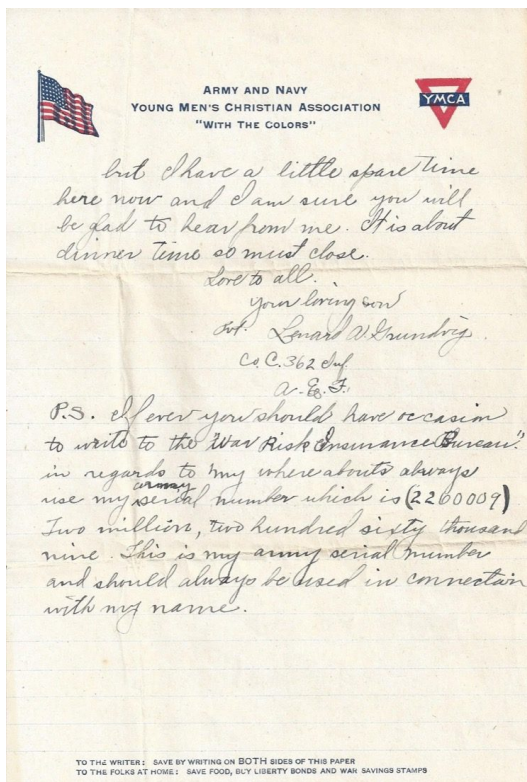 ARMY AND NAVY
YOUNG MEN'S CHRISTIAN ASSOCIATION
"WITH THE COLORS"
YMCA
but I have a little spare time
here now and I am sure you will
be glad to hear from me. It is about
dinner time so must close.
Love to all.
Your loving son
Pvt. Lenard A. Grundvig.
Co. C. 362 Inf.
A. E. F.
P.S. If ever you should have occasion
to write to the War Risk Insurance Bureau"
in regards to my where abouts always
army
use my serial number which is (2260009)
Two million, two hundred sixty thousand
nine. This is my army serial number
and should always be used in connection
with my name.
TO THE WRITER: SAVE BY WRITING ON BOTH SIDES OF THIS PAPER
TO THE FOLKS AT HOME: SAVE FOOD, BUY LIBERTY BONDS AND WAR SAVINGS STAMPS